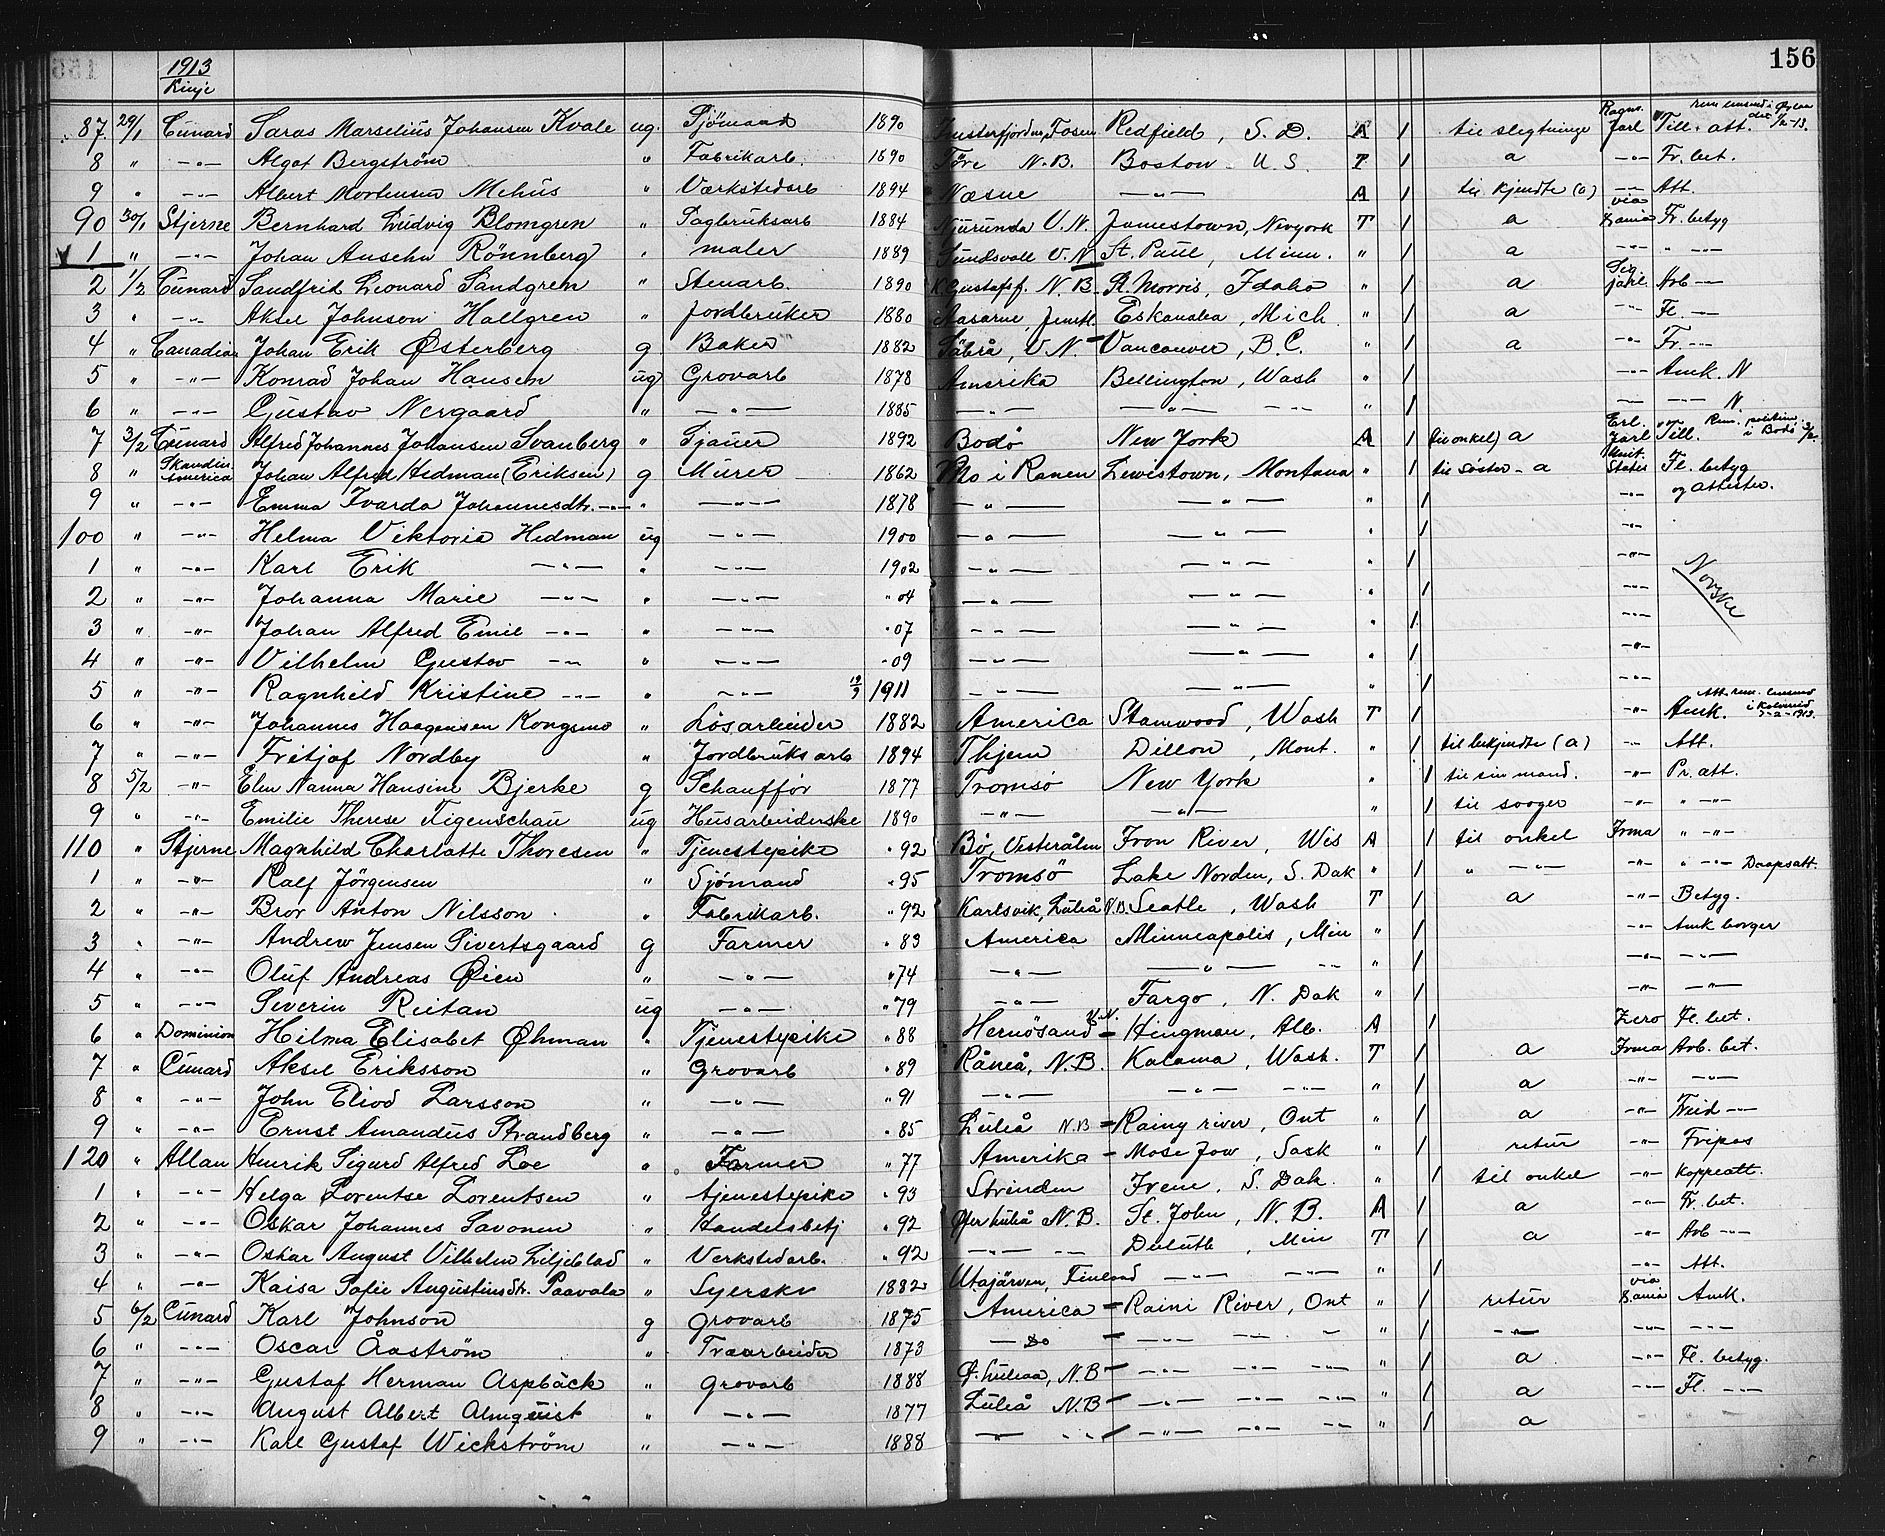 156
1913
Linje
87 29/1 Cunard Marselius Johansen Kvale ug. Sjömand 1890 Fosen Redfield, S. D. A 1 til slegtninge Ragnv. Jarl Till. att. 1/2-13.
8 " -"- Algot Bergström " Fabrikarb. 1890 Töre N.B. Boston U.S. T 1 a -"- Fr. bet.
9 " -"- Albert Mortensen Mehus " Værkstedarb 1894 Næsne -"- A 1 til kjendte (a) -"- Att.
90 30/1 Stjerne Bernhard Ludvig Blomgren " Sagbruksarb 1884 Njurunda V.N. Jamestown, Newyork T 1 a via Fr. betyg
1 " -"- Johan Rönnberg " maler 1889 Sundsvall V.N. St. Paul, Minn. " 1 a -"- " -"-
2 1/2 Cunard Sandfrid Leonard Sandgren " Stenarb. 1890 Gustafsf. N.B. St. Morris, Idaho " 1 a Sig. jarl Arb -"-
3 " -"- Aksel Johnson Hallgren " Jordbruker 1880 Jemtl. Eskanaba, Mich. " 1 a -"- Fl. -"-
4 " Canadian Johan Erik Østerberg g Baker 1882 Säbrå, V.N. Vancouver, B.C. " 1 a -"- Fr. -"-
5 " -"- Konrad Johan Hansen ug Grovarb 1878 Amerika Bellington, Wash " 1 -"- Amk. N
6 " -"- Gustav Nergaard " -"- 1885 -"- -"- -"- " 1 -"- -"- N
7 3/2 Cunard Alfred Johannes Johansen Svanberg " Sjauer 1892 Bodø New York A 1 til onkel) a Erl. Jarl Till. i Bodø 3/2
8 " Skandin. America Johan Alfred Hedman (Eriksen) g Murer 1862 Mo i Ranen Lewistown, Montana " 1 til søster - a Unit. States Fl. betyg og attester.
9 " -"- Emma Ivarda Johannesdtr. -"- " -"- 1878 -"- -"- " 1 -"-
100 " -"- Helma Viktoria Hedman ug -"- 1900 -"- -"- " 1 -"-
1 " -"- Karl Erik -"- " -"- 1902 -"- -"- " 1 -"- Norske
2 " -"- Johanna Marie -"- " -"- " 04 -"- -"- " 1 -"-
3 " -"- Johan Alfred Emil -"- " -"- " 07 -"- -"- " 1 -"-
4 " -"- Vilhelm Gustav -"- " -"- " 09 -"- -"- " 1 -"-
5 " -"- Ragnhild Kristine -"- " -"- 19/9 1911 -"- -"- " 1 -"-
6 " -"- Johannes Haagensen Kongsmo " Løsarbeider 1882 America Stanwood, Wash T 1 -"- Amk. Att. rem. lensmd i Kolvereid 7-2-1913.
7 " -"- Fritjof Nordby " Jordbruksarb 1894 Dillon, Mont. " 1 til bekjendte (a) -"- Att.
8 5/2 -"- Elen Nanna Hansine Bjerke g Schaufför 1877 Tromsø New York " 1 til sin mand. -"- Pr. att.
9 " -"- Emilie Therese Figenschau ug Husarbeiderske 1890 -"- -"- " 1 til svoger -"- " -"-
110 " Stjerne Magnhild Charlotte Thoresen " Tjenestepike " 92 Bø, Vesterålen Iron River, Wis A 1 til onkel Irma " -"-
1 " -"- Ralf Jörgensen " Sjömand " 95 Tromsö Lake Norden, S. Dak " 1 " -"- -"- " -"- Daapsatt.
2 " -"- Bror Anton Nilsson " Fabrikarb. " 92 Karlsvik, Luleå N.B. Seatle, Wash T 1 a -"- Betyg.
3 " -"- Andrew Jensen Sivertsgaard g Farmer " 83 America Minneapolis, Min " 1 -"- Amk borger
4 " -"- Oluf Andreas Øien " -"- " 74 -"- -"- -"- " 1 -"- -"-
5 " -"- Severin Reitan ug -"- " 79 -"- Fargo, N. Dak " 1 -"- -"-
6 " Dominion Hilma Elisabet Øhman " Tjenestepike " 88 Hernösand V.N. Hingman, Alb. A 1 Zero Fl. bet.
7 " Cunard Aksel Eriksson " Grovarb " 89 Råneå, N.B. Kalama, Wash. T 1 a Irma Arb. bet.
8 " -"- John Eliod Larsson " -"- " 91 -"- -"- -"- " 1 a -"- -"-
9 " -"- Ernst Amandus Strandberg " -"- " 85 Luleå N.B Rainy river, Ont " 1 a -"- -"-
120 " Allan Henrik Sigurd Alfred Loe " Farmer " 77 Amerika Mose Jow, Sask " 1 retur -"- Fripas
1 " -"- Helga Lorentse Lorentsen " tjenestepike " 93 Strinden Irene, S. Dak. " 1 til onkel -"- Koppeatt.
2 " -"- Oskar Johannes Savonen " Handelsbetj " 92 Øfver Luleå N.B. St. John, N.B. A 1 a -"- Fr. bet.
3 " -"- Oskar August Vilhelm Liljeblad " Verkstedarb. " 92 -"- -"- Duluth, Min T 1 a -"- Arb -"-
4 " -"- Kaisa Sofie Augustinsdtr. Paavola " Syerske 1882 Utajärven, Finland -"- -"- " 1 -"- Att.
5 6/2 Cunard Karl Johnson g grovarb 1875 America Raini River, Ont " 1 retur via Amk.
6 " -"- Oscar Åraström " Træarbeider 1873 Do -"- -"- " 1 -"- -"- -"-
7 " -"- Gustaf Herman Aspbäck " grovarb 1888 Ø. Luleaa, N.B -"- -"- -"- " 1 a -"- Fl. betyg.
8 " -"- August Albert Almquist " -"- 1877 Luleå N.B -"- -"- -"- " 1 a -"- Fl. -"-
9 " -"- Karl Gustaf Wickström " -"- 1888 -"- -"- -"- -"- " 1 a